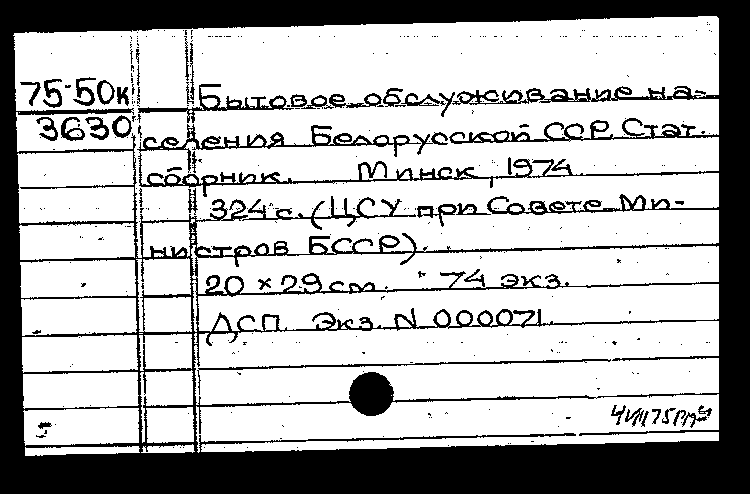 75-50к Бытовое обслуживание на-
3630 селения Белорусской ССР. Стат.
сборник. Минск, 1974
324 с. (ЦСУ при Совете Ми-
нистров БССР).
20 × 29 см. 74 экз.
ДСП. Экз. N 000071.